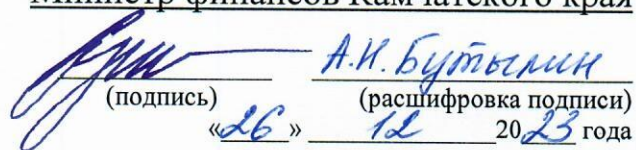 Министр финансов Камчатского края
А.Н. Бутылин
(подпись) (расшифровка подписи)
«26» 12 2023 года